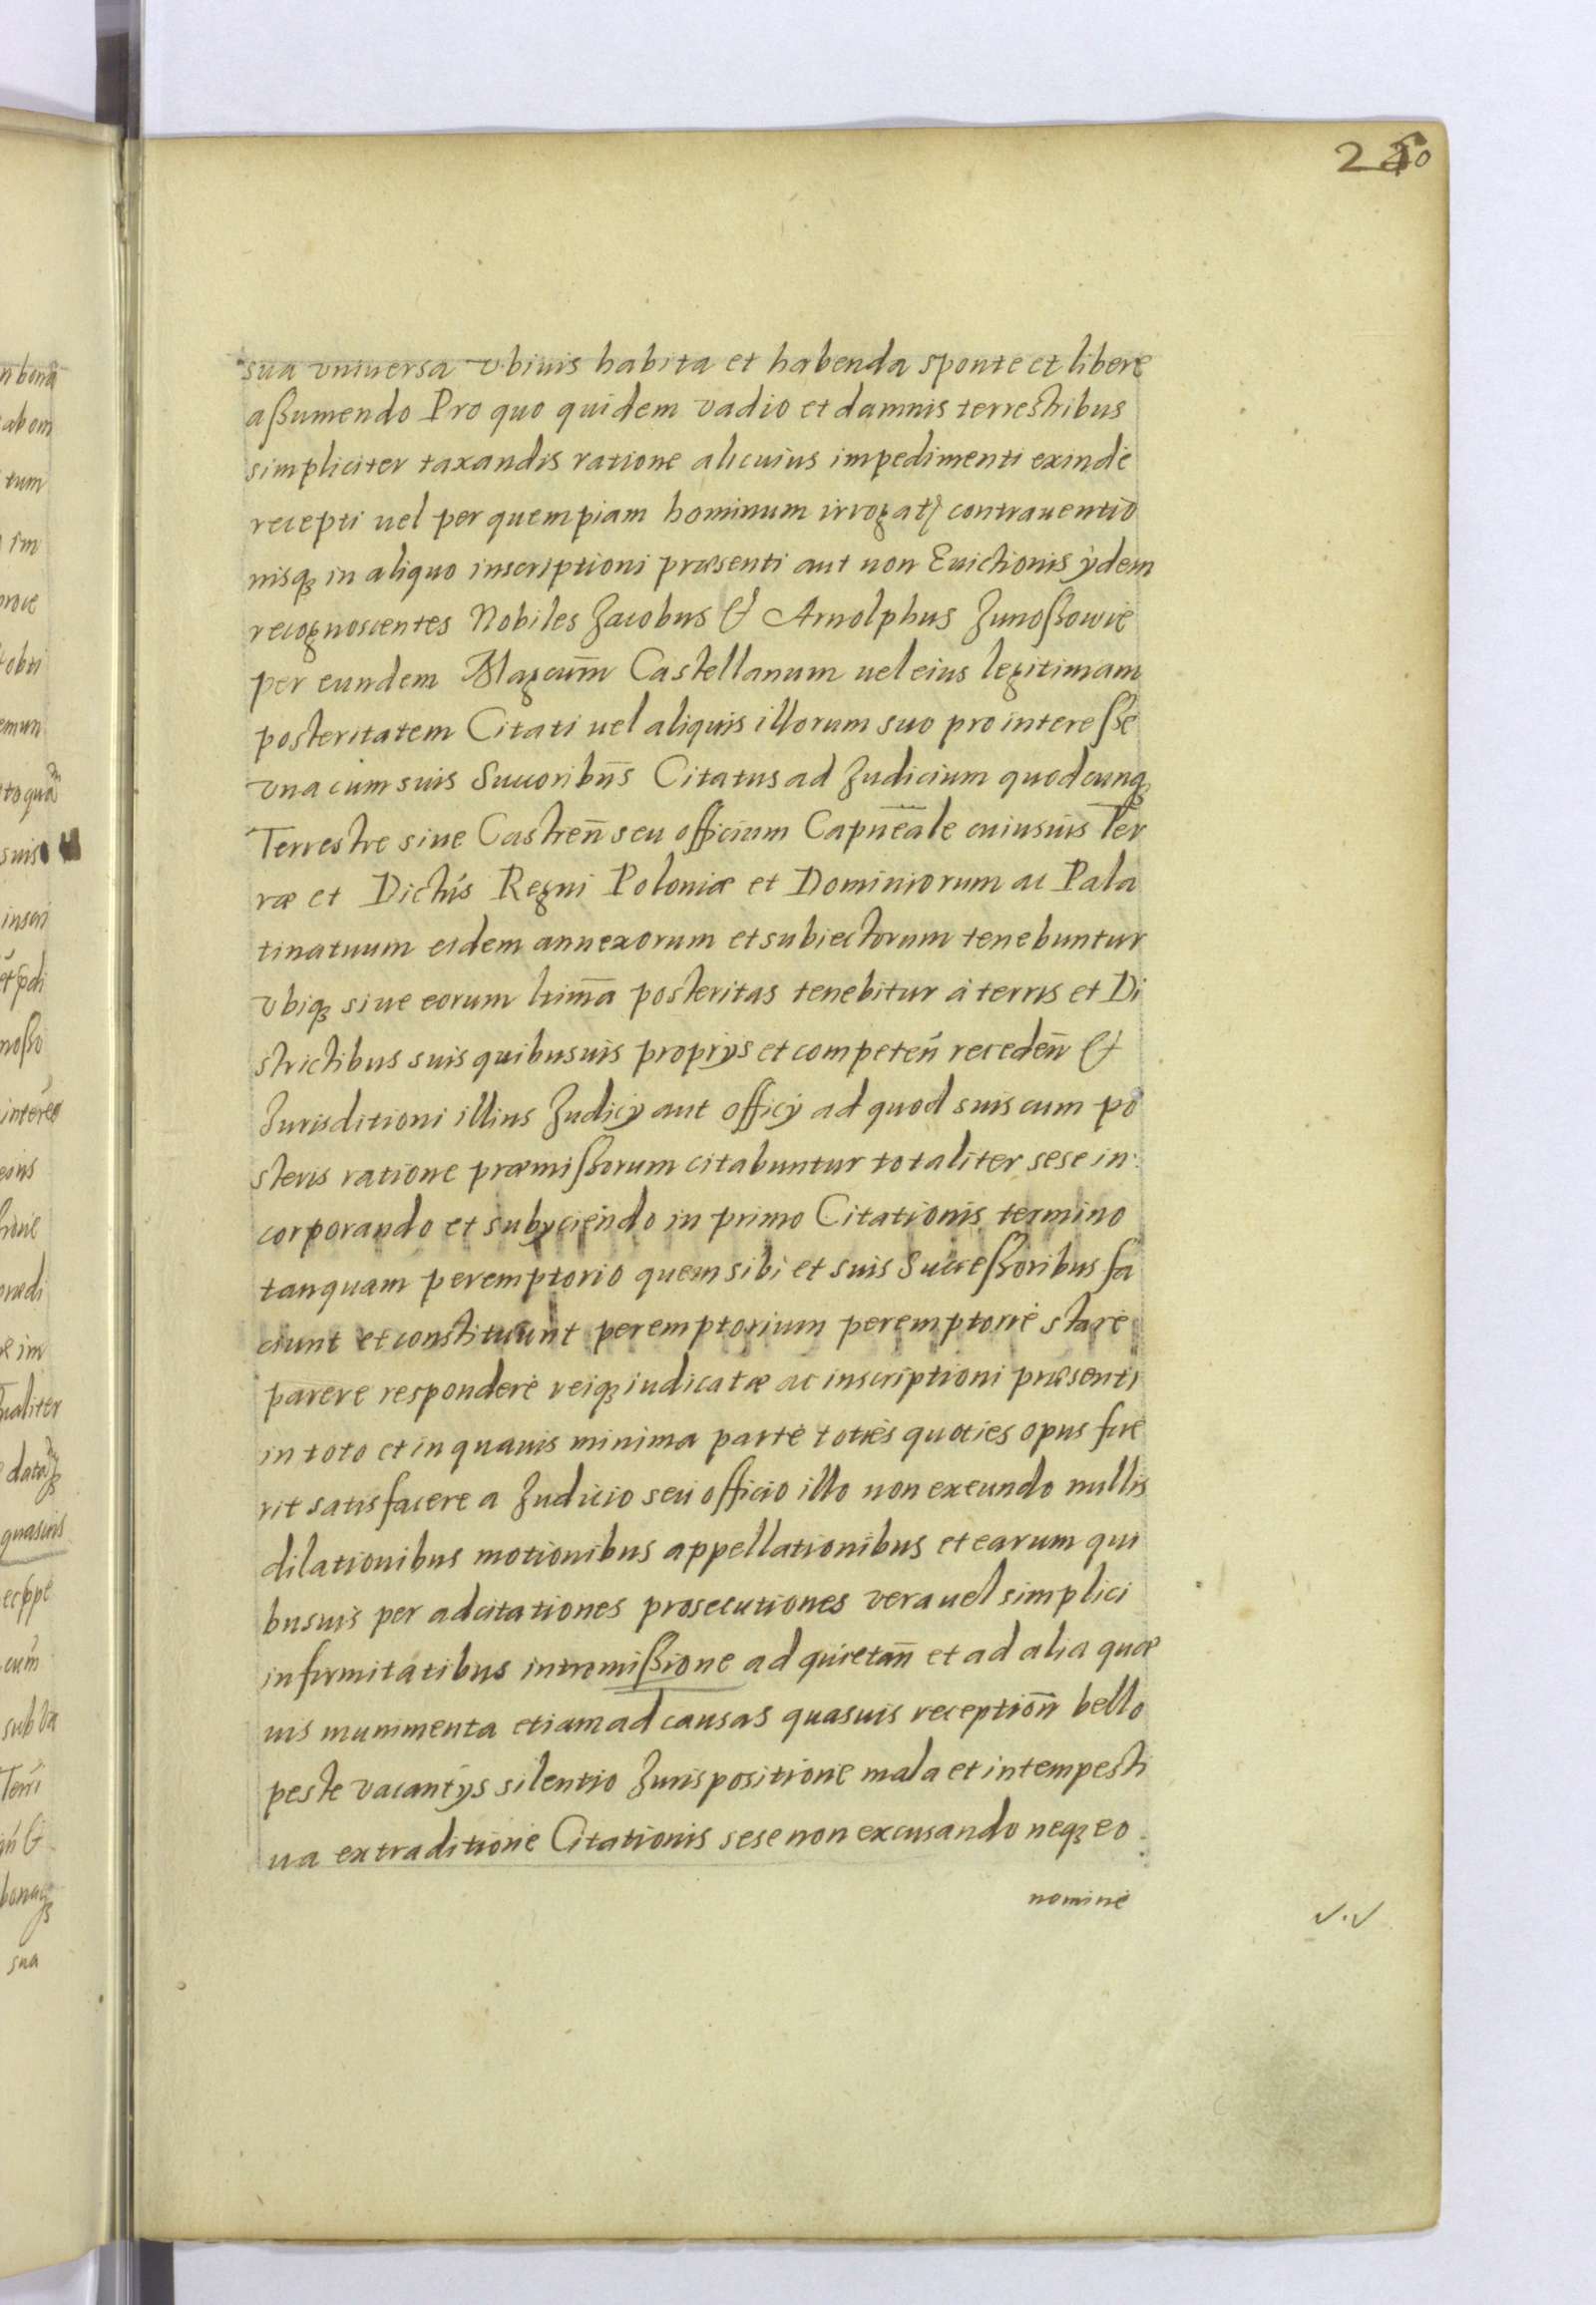 sua vniuersa vbiuis habita et habenda sponte et libere
aßumendo Pro quo quidem vadio et damnis terrestribus
simpliciter taxandis ratione alicuius impedimenti exinde
recepti uel per quempiam hominum irrogatj contrauentio
nisqꝫ in aliquo inscriptioni præsenti aut non Euictionis ÿdem
recognoscentes Nobiles Jacobus & Arnolphus Junoßowie
per eundem Magcum̄ Castellanum uel eius legitimam
posteritatem Citati uel aliquis illorum suo pro intereße
vna cum suis Succoribus̄ Citatus ad Judicium quodcunqꝫ
Terrestre siue Castren̄ seu officium Capn̄eāle cuiusuis Ter
ræ et Dictús Regni Poloniæ et Dominiorum ac Pala
tinatuum eidem annexorum et subiectorum tenebuntur
vbiqꝫ siue eorum ltim̄a posteritas tenebitur à terris et Di
strictibus suis quibusuis proprÿs et competen̄ receden̄ &
Jurisditioni illius Judicÿ aut officÿ ad quod suis cum po
steris ratione præmißorum citabuntur totaliter sese in
corporando et subÿciendo in primo Citationis termino
tanquam peremptorio quem sibi et suis Succeßoribus fa
ciunt et constituunt peremptorium peremptorie stare
parere respondere reiqꝫ iudicatæ ac inscriptioni præsenti
in toto et in quauis minima parte toties quoties opus fue
rit satisfacere a Judicio seu officio illo non exeundo nullis
dilationibus motionibus appellationibus et earum qui
busuis per adcitationes prosecutiones vera uel simplici
infirmitatibus intromißione ad quietan̄ et ad alia quæ
uis munimenta etiam ad causas quasuis reception̄ bello
peste vacantÿs silentio Juris positione mala et intempesti
ua extraditione Citationis sese non excusando neqꝫ eo
nomine